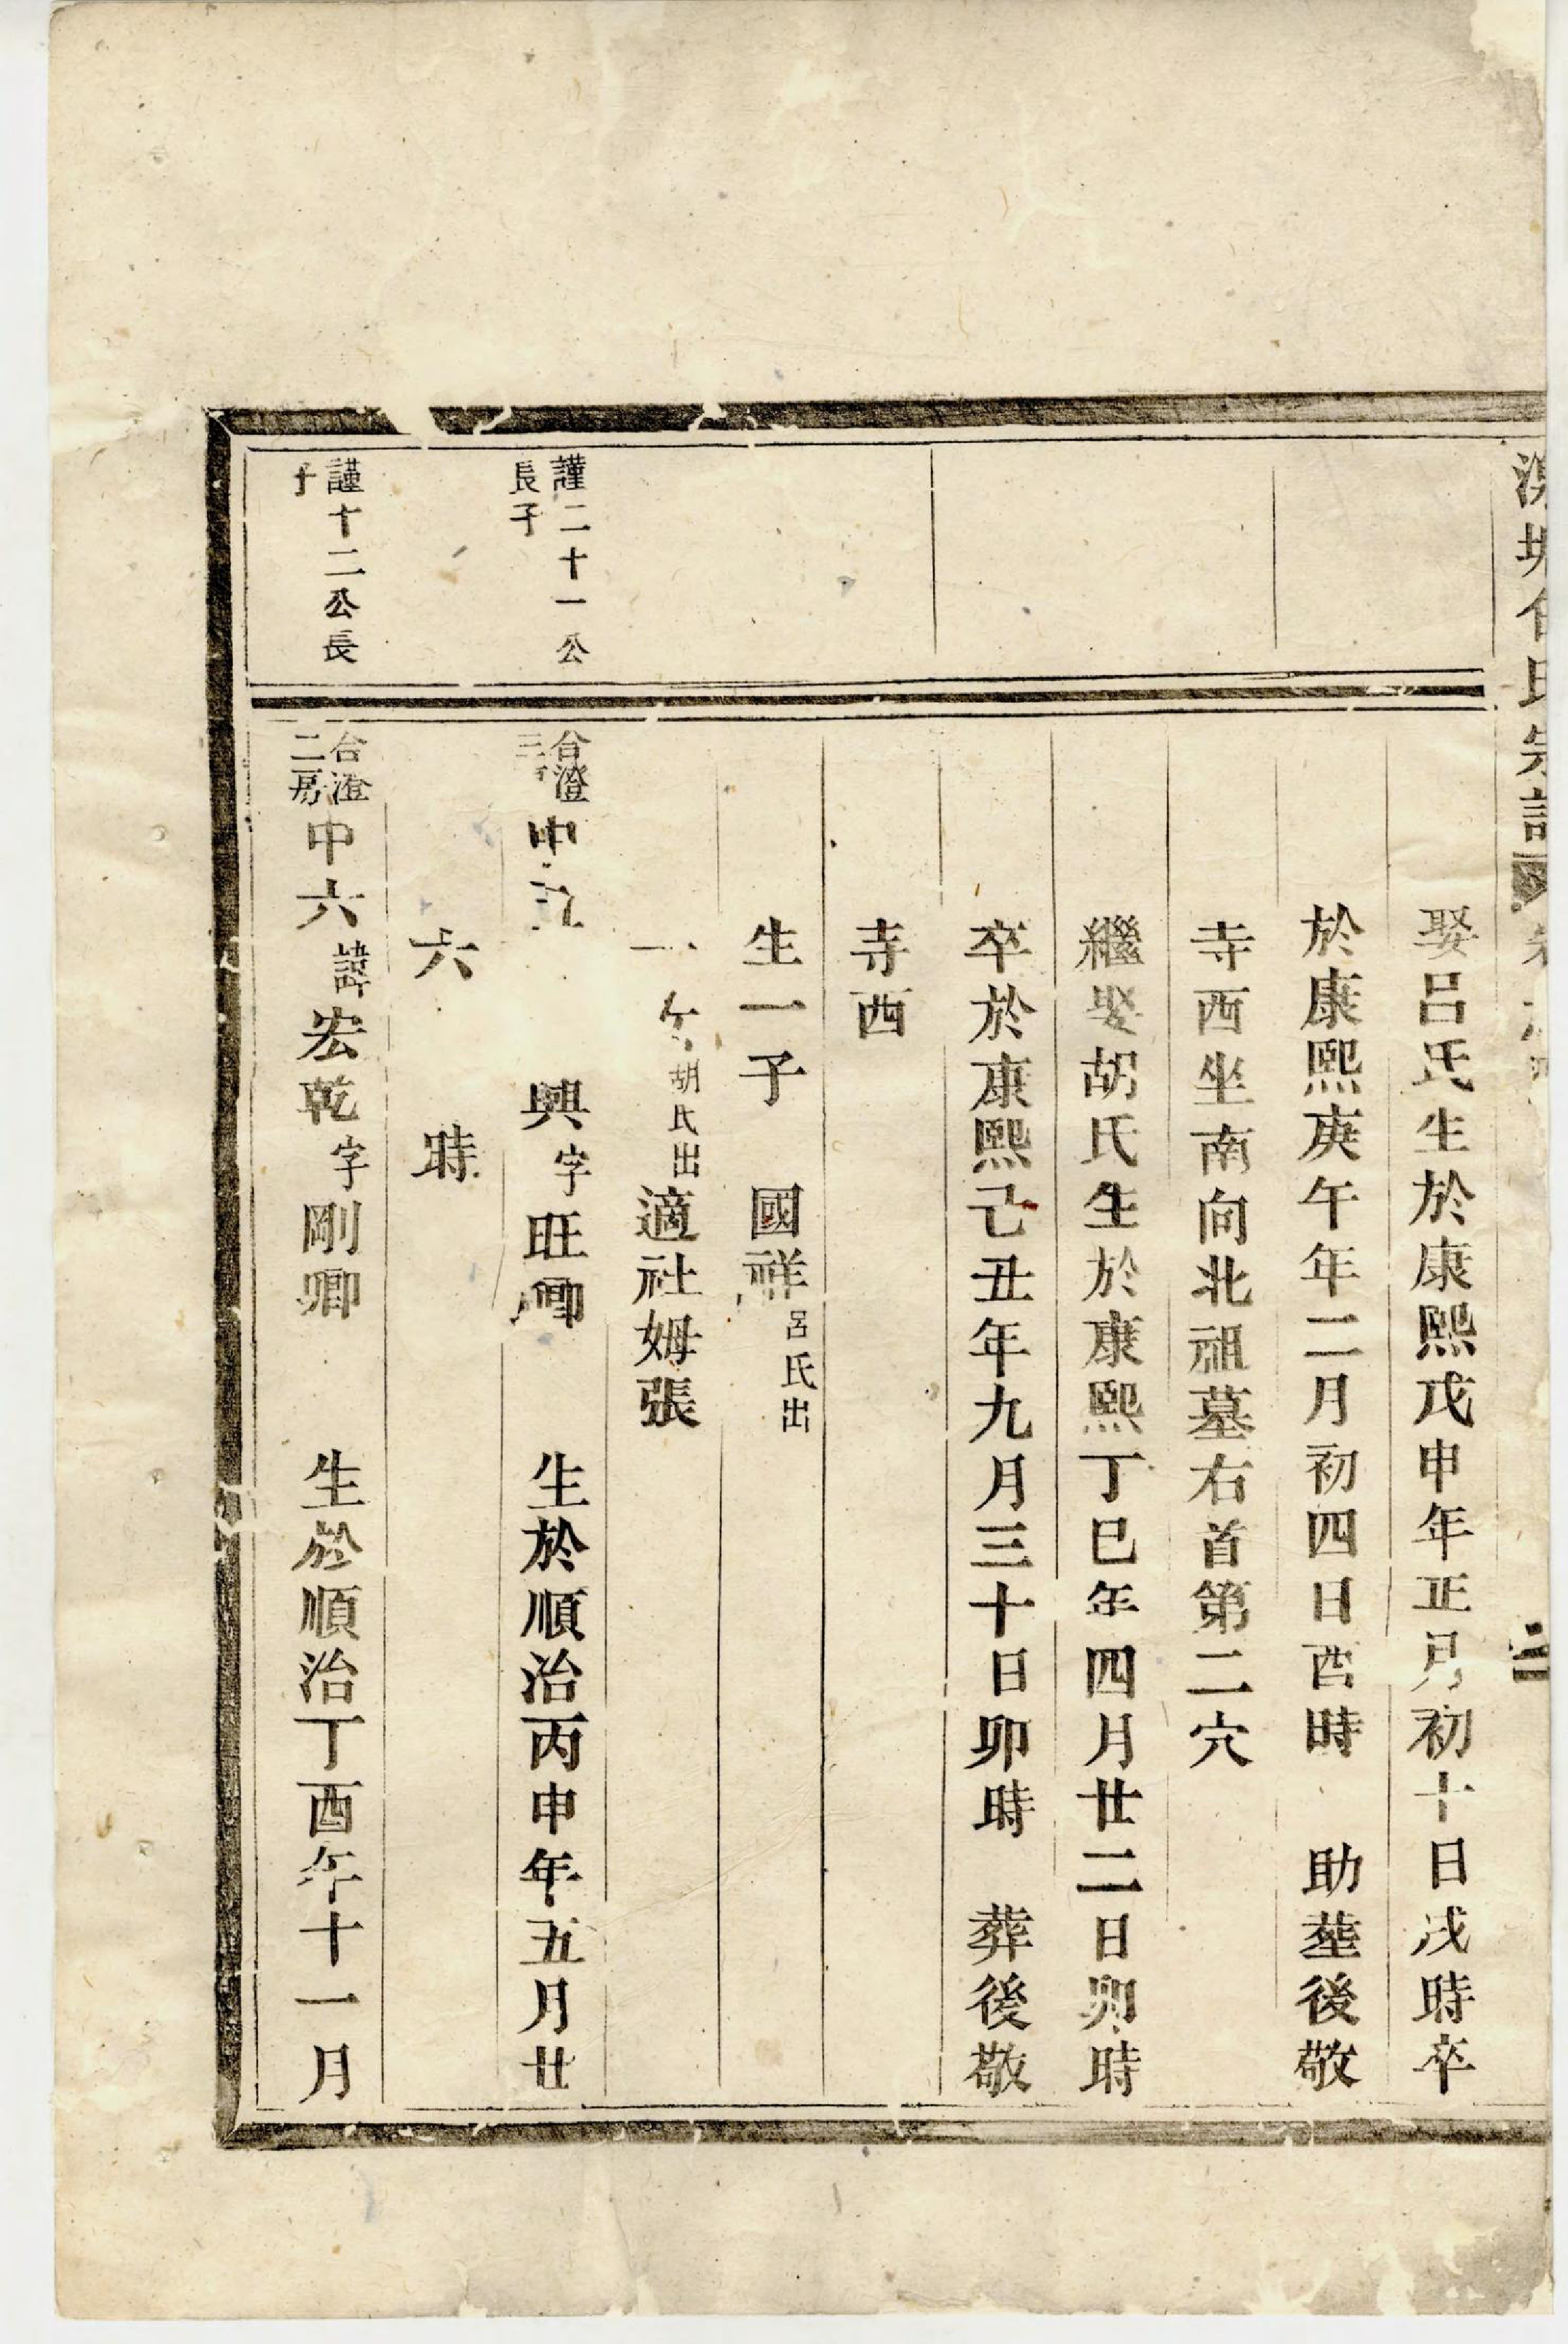 氏宗譜
娶呂氏生於康熙戊申年正月初十日戌時卒
於康熙庚午年二月初四日酉時 助塟後敬
寺西坐南向北祖墓右首第二穴
繼娶胡氏生於康熙丁巳年四月廿二日卯時
卒於康熙己丑年九月三十日卯時 葬後敬
寺西
生一子 國祥呂氏出
一 胡氏出適社姆張
謹二十一公
長子
台澄
三
中 興字旺卿 生於順治丙申年五月廿
六 時
謹十二公長
子
台澄
二房
中六諱宏乾字剛卿 生於順治丁酉年十一月